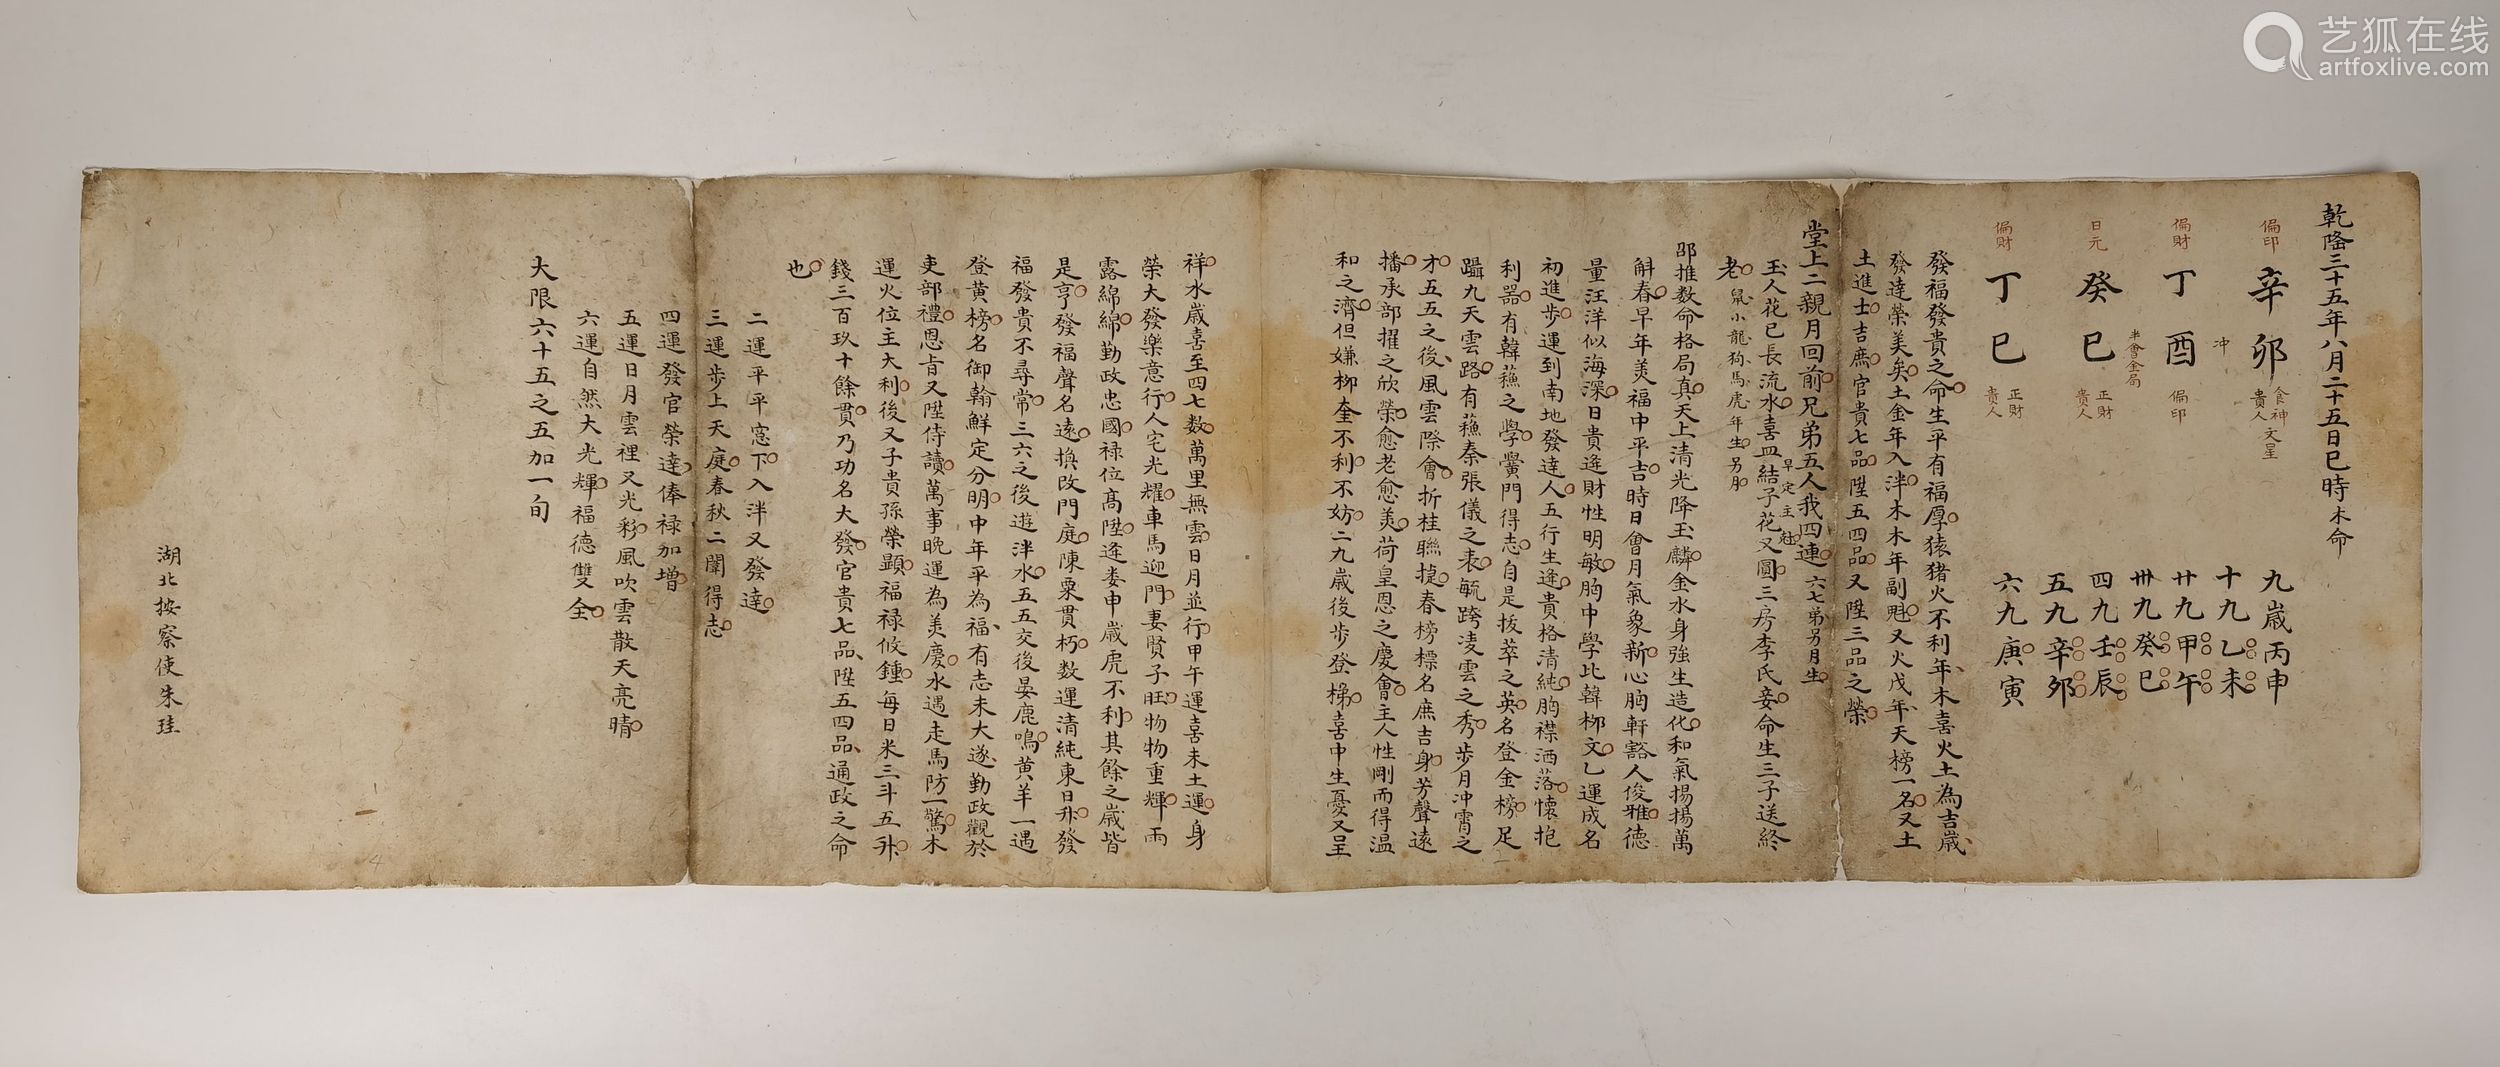 艺狐在线
artfoxlive.com
乾隆三十五年八月二十五日巳時木命
偏印 辛卯 食神 貴人 文星
冲
偏財 丁酉 偏印
半會金局
日元 癸巳 正財 貴人
偏財 丁巳 正財 貴人
九歲丙申
十九乙未
廿九甲午
卅九癸巳
四九壬辰
五九辛夘
六九庚寅
發福發貴之命生平有福厚猿猪火不利年木喜火土為吉歲
發達榮美矣土金年入泮木木年副魁又火戊年天榜一名又土
土進士吉庶官貴七品陞五四品又陞三品之榮
堂上二親月回前兄弟五人我四連六七弟另月生
早定主魁
玉人花已長流水喜皿結子花又圓三房李氏妾命生三子送終
老鼠小龍狗馬虎年生另月
邵推数命格局真天上清光降玉麟金水身強生造化和氣揚揚萬
斛春早年美福中平吉時日會月氣象新心胸軒豁人俊雅德
量汪洋似海深日貴逄財性明敏胸中學比韓栁文乙運成名
初進步運到南地發達人五行生逄貴格清純胸襟洒落懷抱
利器有韓蘓之學黌門得志自是拔萃之英名登金榜足
躡九天雲路有蘓秦張儀之表毓跨凌雲之秀步月冲霄之
才五五之後風雲際會折桂聮㨗春榜標名庶吉身芳聲遠
播承部擢之欣榮愈老愈美荷皇恩之慶會主人性剛而得温
和之濟但嫌柳奎不利不妨二九歲後步登梯喜中生憂又呈
祥水歲喜至四七数萬里無雲日月並行甲午運喜未土運身
榮大發樂意行人宅光耀車馬迎門妻賢子旺物物重輝雨
露綿綿勤政忠國禄位髙陞逄娄申歲虎不利其餘之歲皆
是亨發福聲名遠換改門庭陳粟貫朽数運清純東日升發
福發貴不尋常三六之後遊泮水五五交後晏鹿鳴黄羊一遇
登黄榜名御翰鮮定分明中年平為福有志未大遂勤政觀於
吏部禮恩旨又陞侍讀萬事晚運為美慶水遇走馬防一驚木
運火位主大利後又子貴孫榮顕福禄攸鍾每日米三斗五升
錢三百玖十餘貫乃功名大發官貴七品陞五四品通政之命
也
二運平平窓下入泮又發達
三運步上天庭春秋二闈得志
四運發官榮達俸禄加增
五運日月雲裡又光彩風吹雲散天亮晴
六運自然大光輝福德雙全
大限六十五之五加一旬
湖北按察使朱珪
4